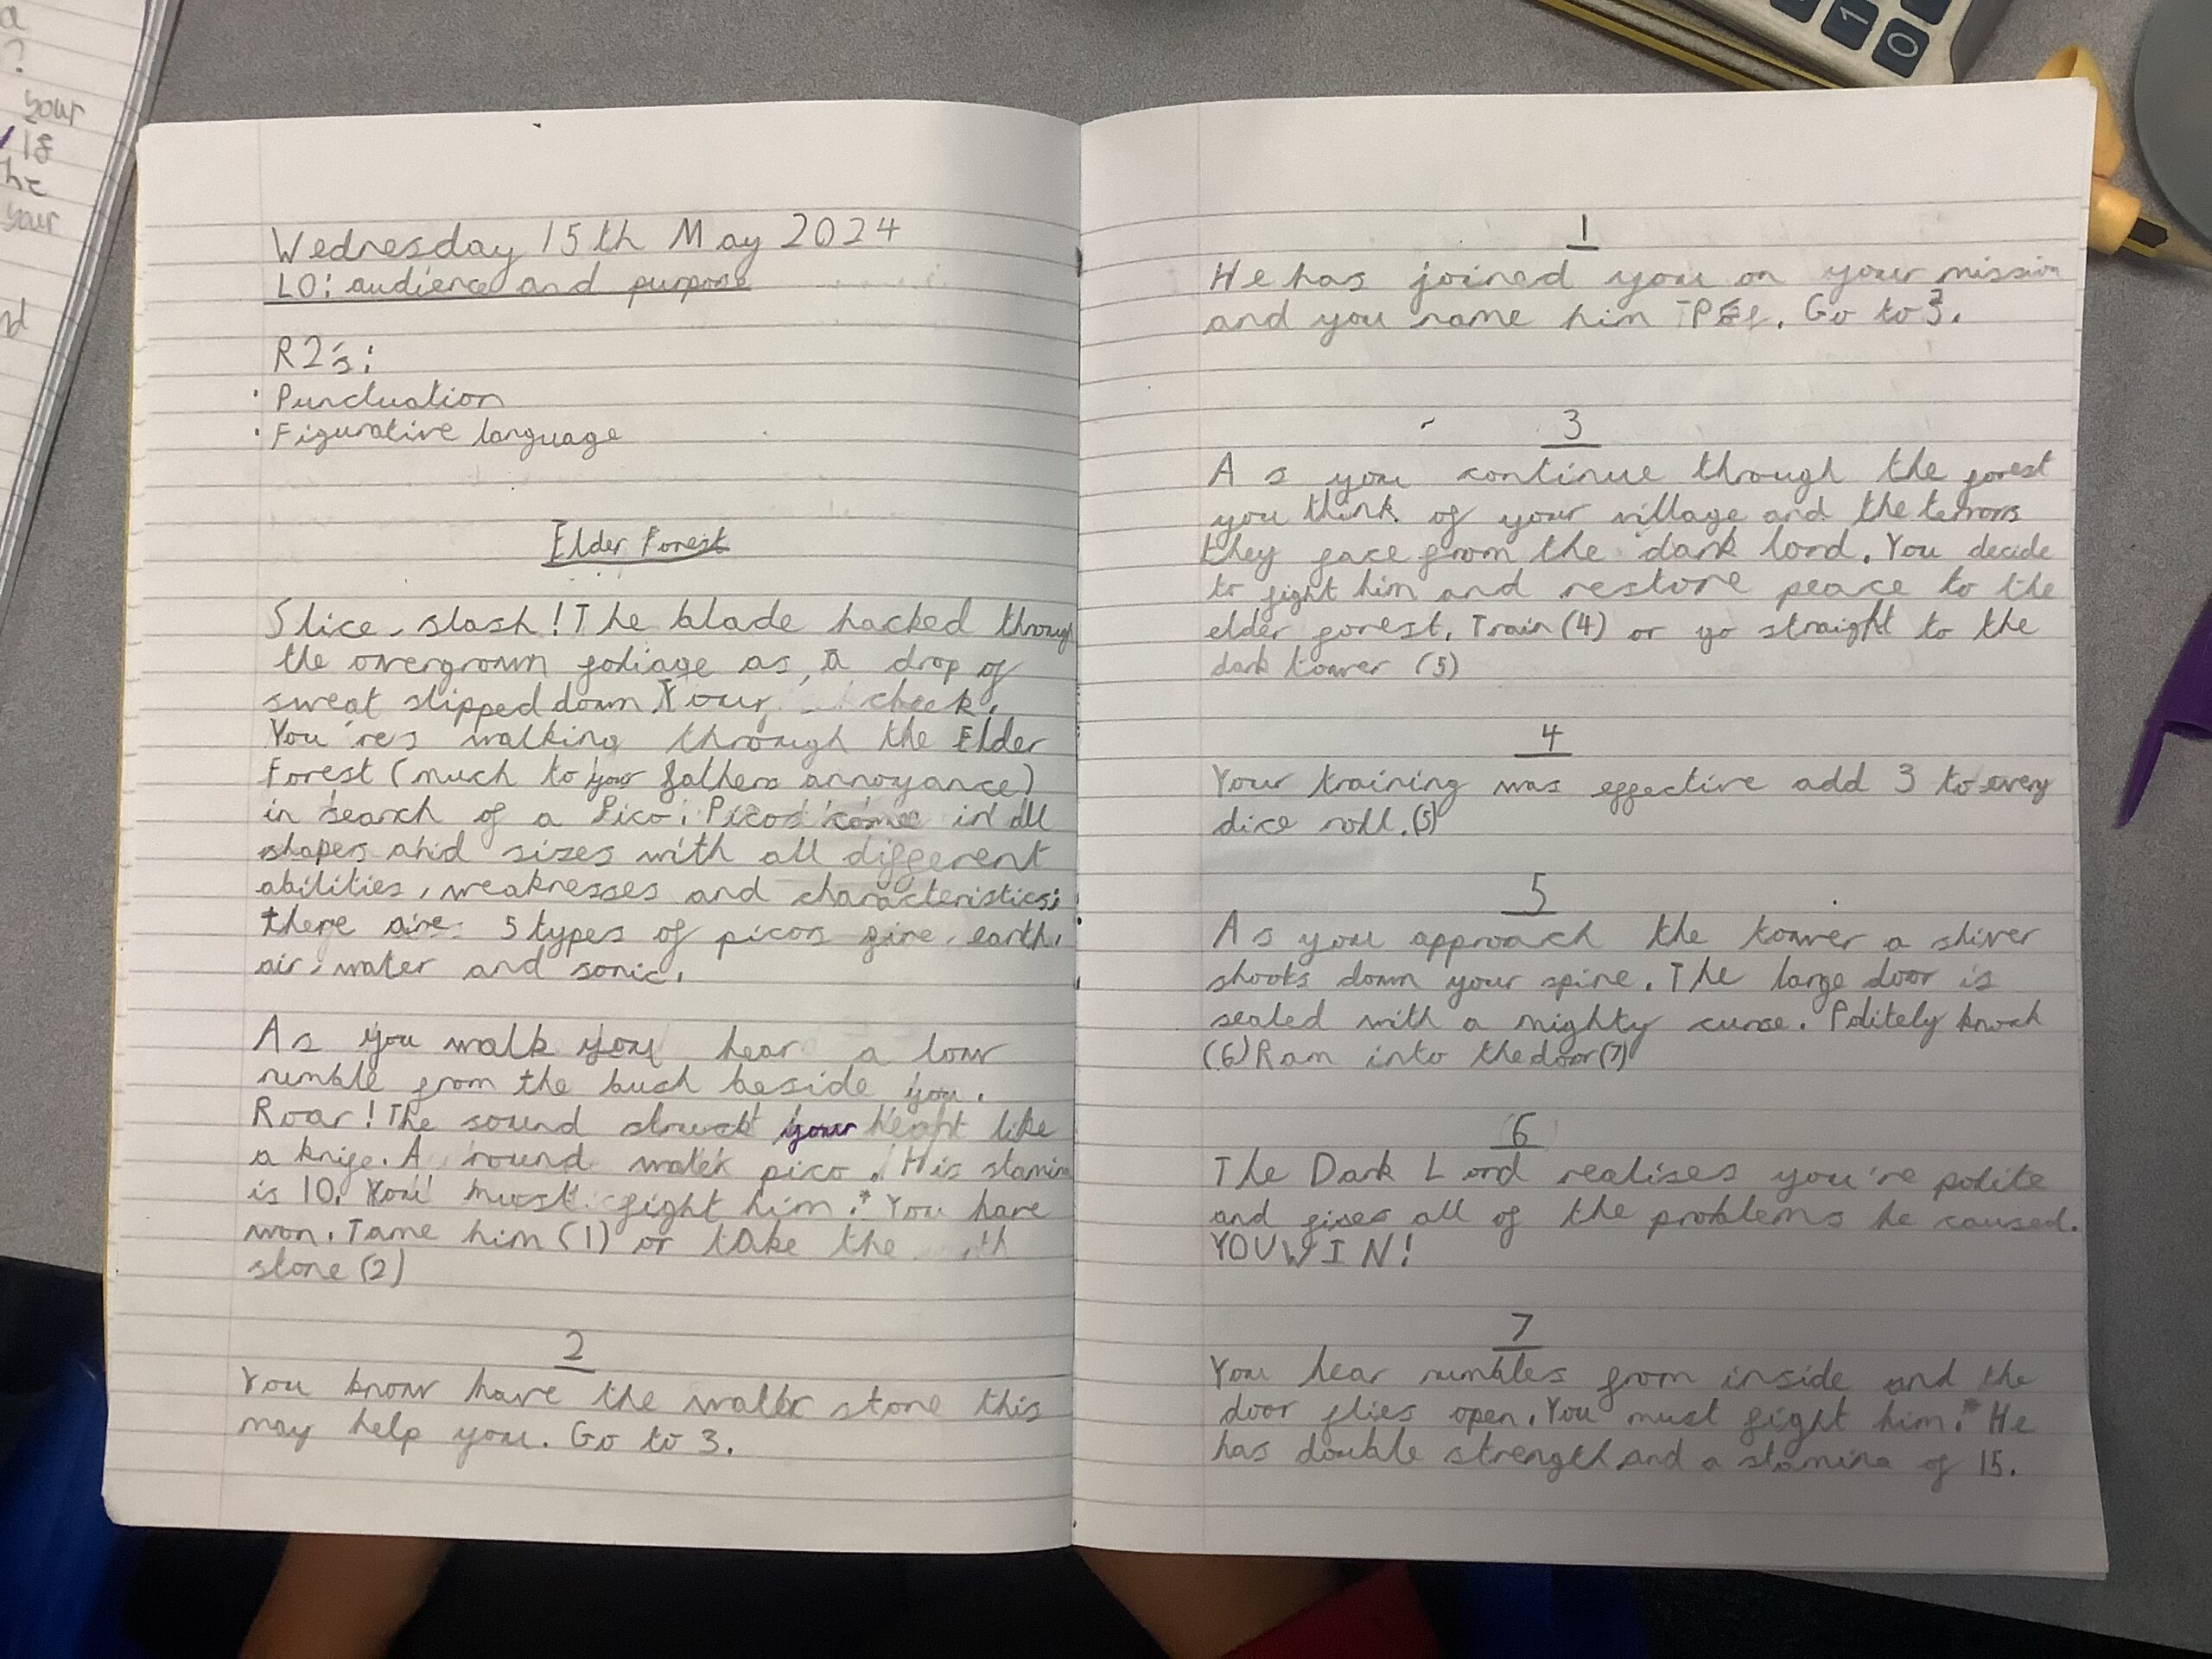 Wednesday 15th May 2024
LO: audience and purpose
R2's:
· Punctuation
· Figurative language
Elder Forest
Slice, slash! The blade hacked through
the overgrown foliage as, a drop of
sweat slipped down Your cheek.
You'res walking through the Elder
Forest (much to your fathers annoyance)
in search of a Pico; Picos come in all
shapes and sizes with all different
abilities, weaknesses and characteristics;
there are 5 types of picos fire, earth,
air, water and sonic.
As you walk you hear a low
rumble from the bush beside you.
Roar! The sound struck your heart like
a knife. A round water pico. His stamina
is 10. You must fight him.* You have
won. Tame him (1) or take the
stone (2)
2
You know have the water stone this
may help you. Go to 3.
1
He has joined you on your mission
and you name him Go to 3.
3
As you continue though the forest
you think of your village and the terrors
they face from the dark lord. You decide
to fight him and restore peace to the
elder forest. Train (4) or go straight to the
dark tower (5)
4
Your training was effective add 3 to every
dice roll. (5)
5
As you approach the tower a shiver
shoots down your spine. The large door is
sealed with a mighty curse. Politely knock
(6) Ram into the door (7)
6
The Dark Lord realises you're polite
and fixes all of the problems he caused.
YOU WIN!
7
You hear rumbles from inside and the
door flies open. You must fight him.* He
has double strength and a stamina of 15.
a
?
your
If
he
your
nd
1
0